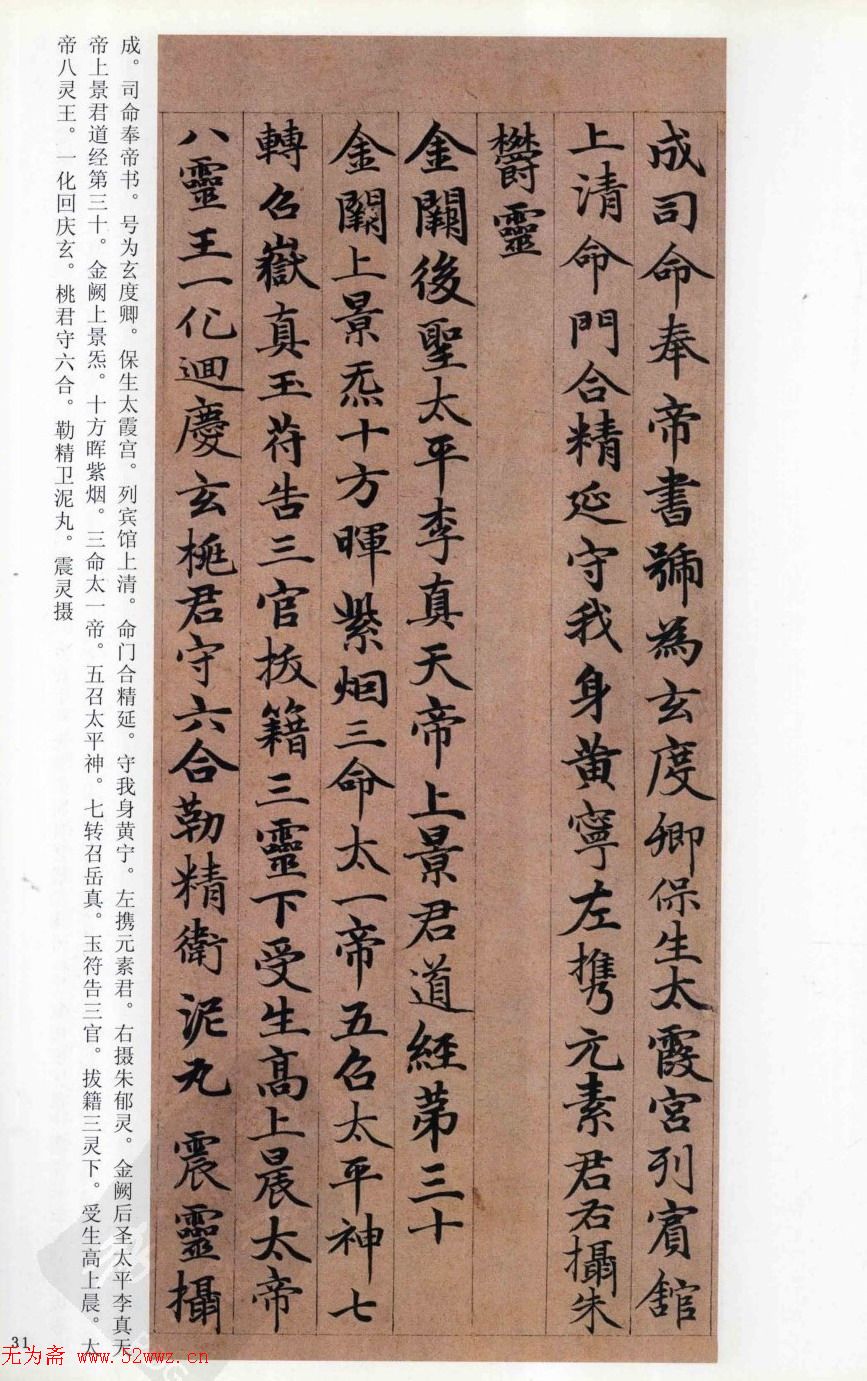 成司命奉帝書號為玄度卿保生太霞宮列賓舘
上清命門合精延守我身黄寧左携元素君右攝朱
欝靈
金闕後聖太平李真天帝上景君道經第三十
金闕上景炁十方暉紫烟三命太一帝五召太平神七
轉召嶽真玉苻告三官扳籍三靈下受生高上晨太帝
八靈王一化迴慶玄桃君守六合勒精衛泥丸震靈攝
成。司命奉帝书。号为玄度卿。保生太霞宫。列宾馆上清。命门合精延。守我身黄宁。左携元素君。右摄朱郁灵。金阙后圣太平李真天
帝上景君道经第三十。金阙上景炁。十方晖紫烟。三命太一帝。五召太平神。七转召岳真。玉符告三官。拔籍三灵下。受生高上晨。太
帝八灵王。一化回庆玄。桃君守六合。勒精卫泥丸。震灵摄
31
无为斋 www.52wwz.cn